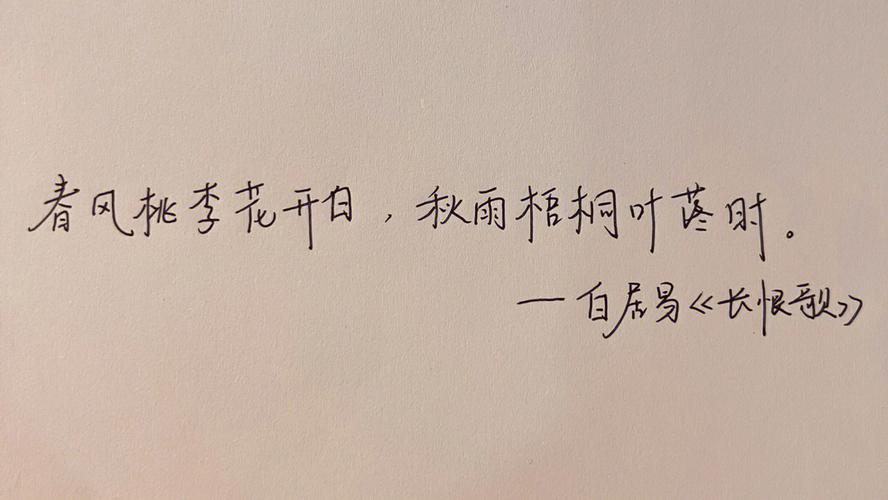 春风桃李花开日,秋雨梧桐叶落时。
—白居易《长恨歌》